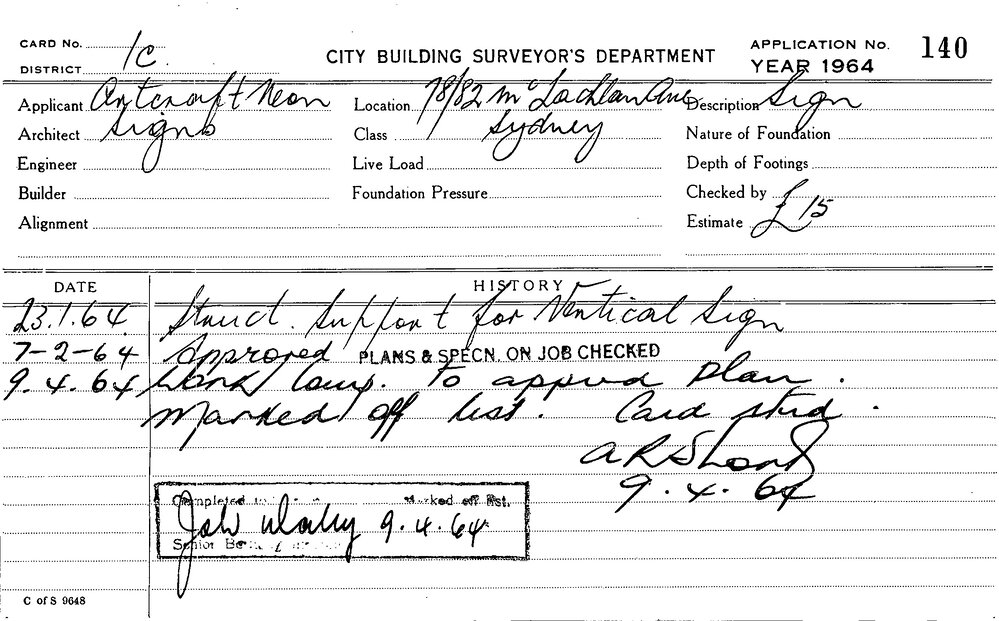 CARD No. 1C.
DISTRICT
CITY BUILDING SURVEYOR'S DEPARTMENT
APPLICATION No. 140
YEAR 1964
Applicant Artcraft Neon Location 78/82 McLachlan Ave Description Sign
Architect Signs Class Sydney Nature of Foundation
Engineer Live Load Depth of Footings
Builder Foundation Pressure Checked by
Alignment Estimate £15
DATE HISTORY
23.1.64 Struct. Support for Vertical Sign
7-2-64 Approved PLANS & SPECN. ON JOB CHECKED
9.4.64 Work Comp. to appvd plan.
Marked off list. Card stmd.
A R Short
9.4.64
Completed Marked off list.
9.4.64
Senior
C of S 9648